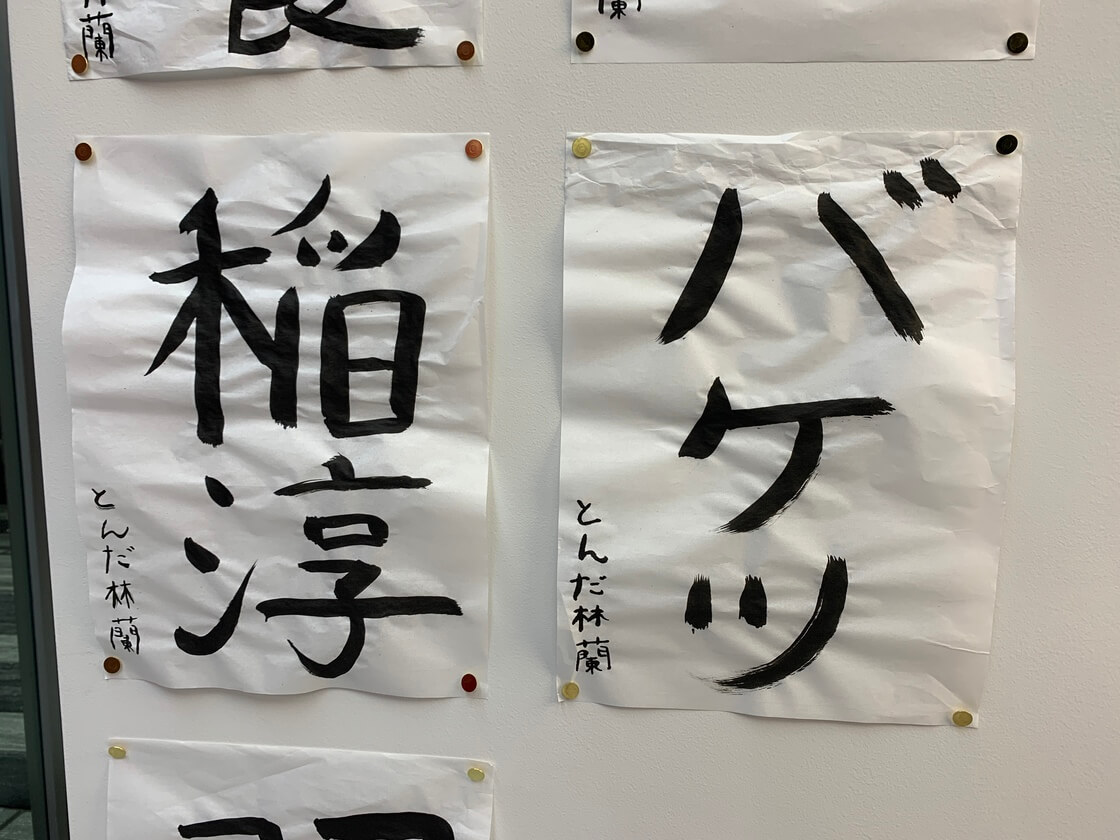 蘭
稲淳
とんだ林蘭
バケツ
とんだ林蘭